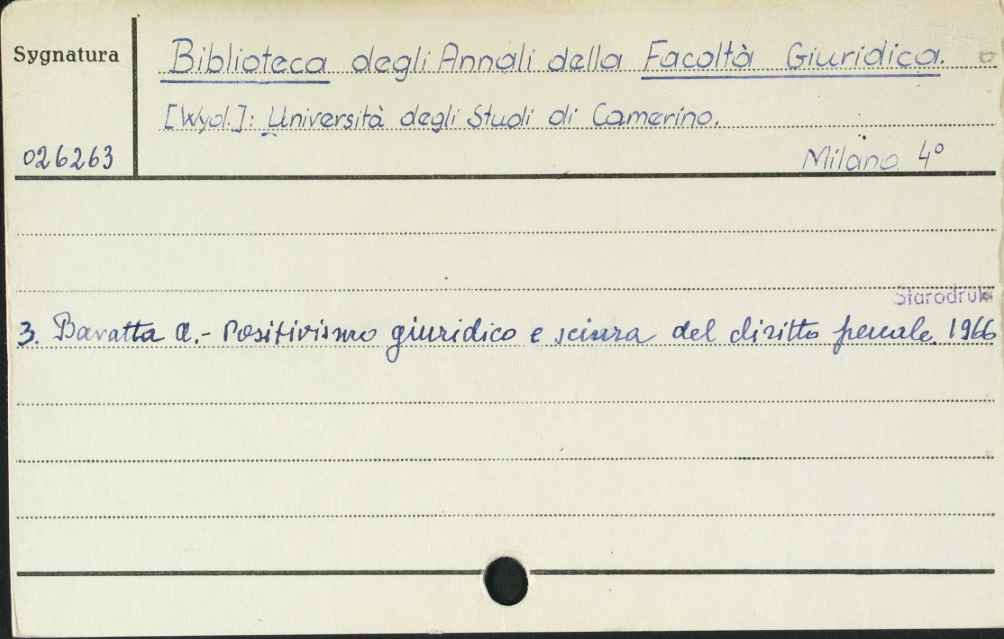 Sygnatura
Biblioteca degli Annali della Facoltà Giuridica.
[Wyd.]: Università degli Studi di Camerino.
026263
Milano 4°
Starodruki
3. Baratta A.- Positivismo giuridico e scienza del diritto penale. 1966